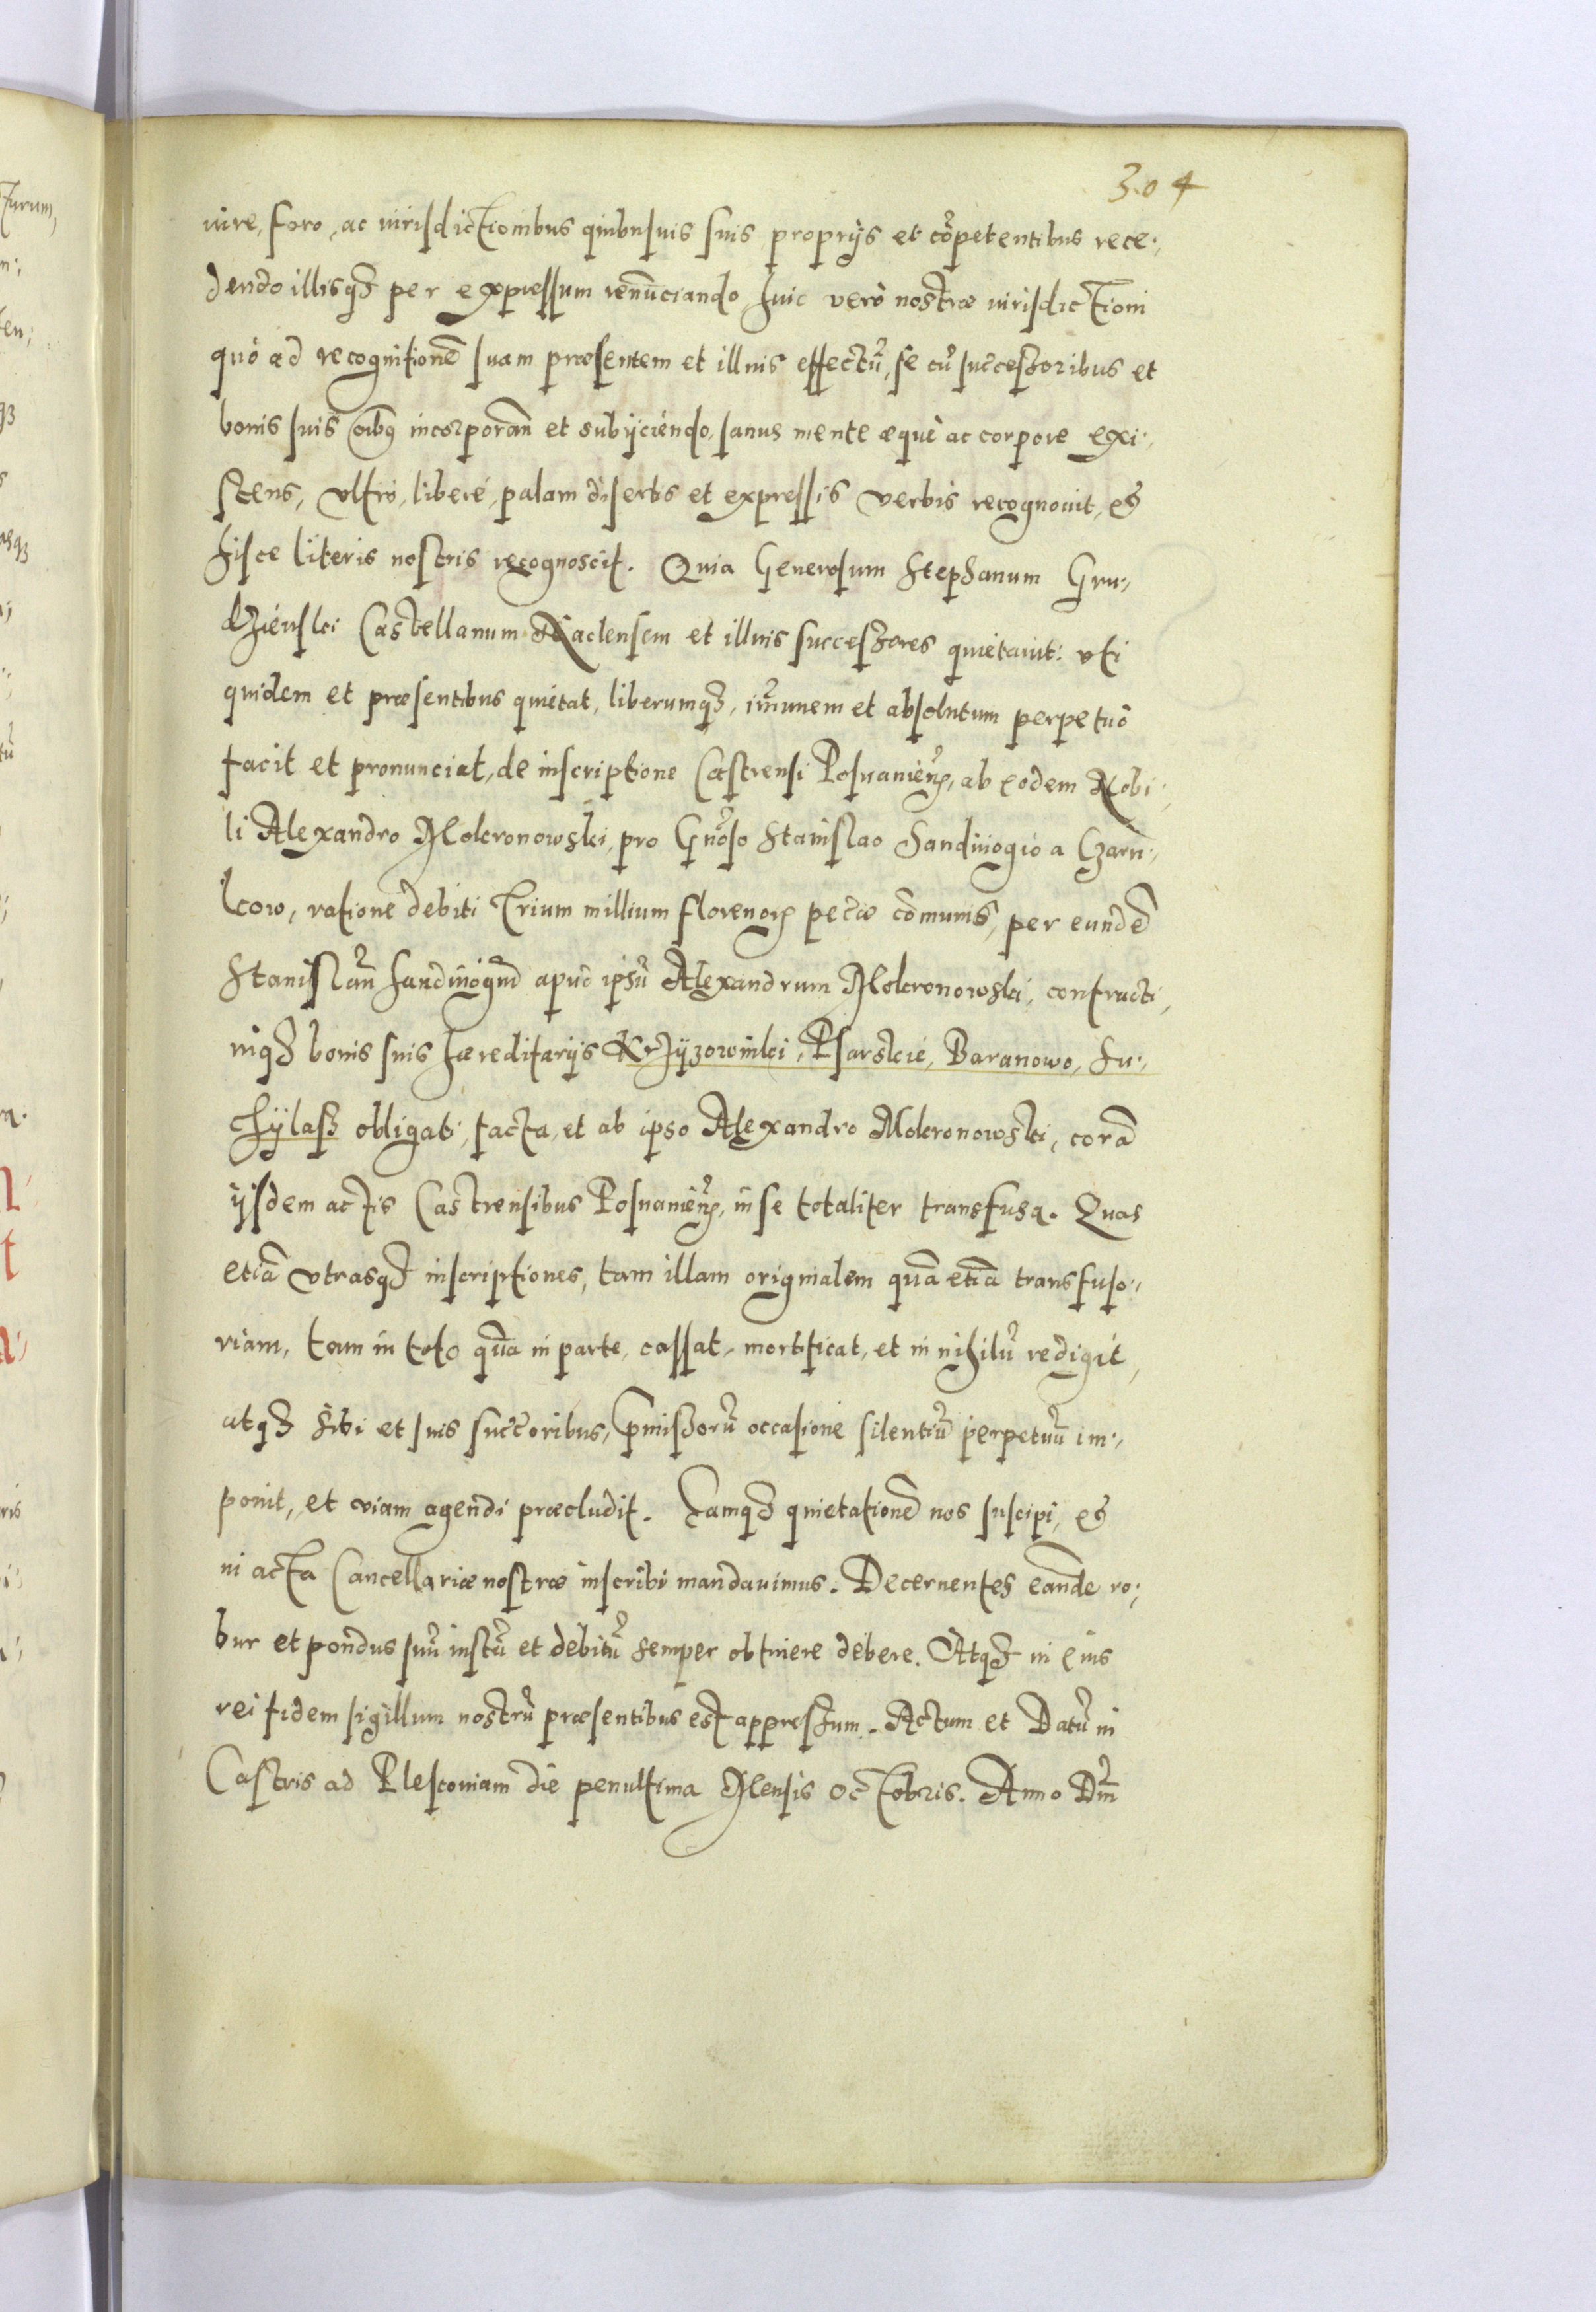 304
iure, foro, ac iurisdictionibus quibusuis suis proprijs et cõpetentibus rece-
dendo illisq3 per expressum renũciando, huic verò nostræ iurisdictioni
quò ad recognitionẽ suam præsentem et illius effectũ, se cũ successoribus et
bonis suis õibq incorporãn et subijciendo, sanus mente æquè ac corpore exi-
stens, vltrò, liberè, palam disertis et expressis verbis recognouit, et
hisce literis nostris recognoscit. Quia Generosum Stephanum Gru-
dzieński Castellanum Naclensem et illius successores quietauit: vti
quidem et præsentibus quietat, liberumq3, im̃unem et absolutum perpetuò
facit et pronunciat, de inscriptione Castrensi Posnanień, ab eodem Nobi-
li Alexandro Mokronowski, pro Gñoso Stanislao Sandiuogio a Czarn-
kow, ratione debiti Trium millium florenorũ pecũiæ cõmunis, per eundẽ
Stanislaũ Sandiuogiũ apud ipsũ Alexandrum Mokronowski, contracti,
inq3 bonis suis hæreditarijs Krzyżowniki, Psarskie, Baranowo, Su-
chylasz obligati, facta, et ab ipso Alexandro Mokronowski, corã
ijsdem actis Castrensibus Posnanień, in se totaliter transfusa. Quas
etiã vtrasq3 inscriptiones, tam illam originalem quã etiã transfuso-
riam, tam in toto quã in parte, cassat, mortificat, et in nihilũ redigit,
atq3 sibi et suis succ̃oribus, p̃missorũ occasione silentiũ perpetuũ im-
ponit, et viam agendi præcludit. Eamq3 quietationẽ nos suscipi, et
in acta Cancellariæ nostræ inscribi mandauimus. Decernentes eãnde ro-
bur et pondus suũ iustũ et debitũ semper obtinere debere. Atq3 in eius
rei fidem sigillum nostrũ præsentibus est appressum. Actum et Datũ in
Castris ad Plesconiam die penultima Mensis Octobris. Anno Dñi